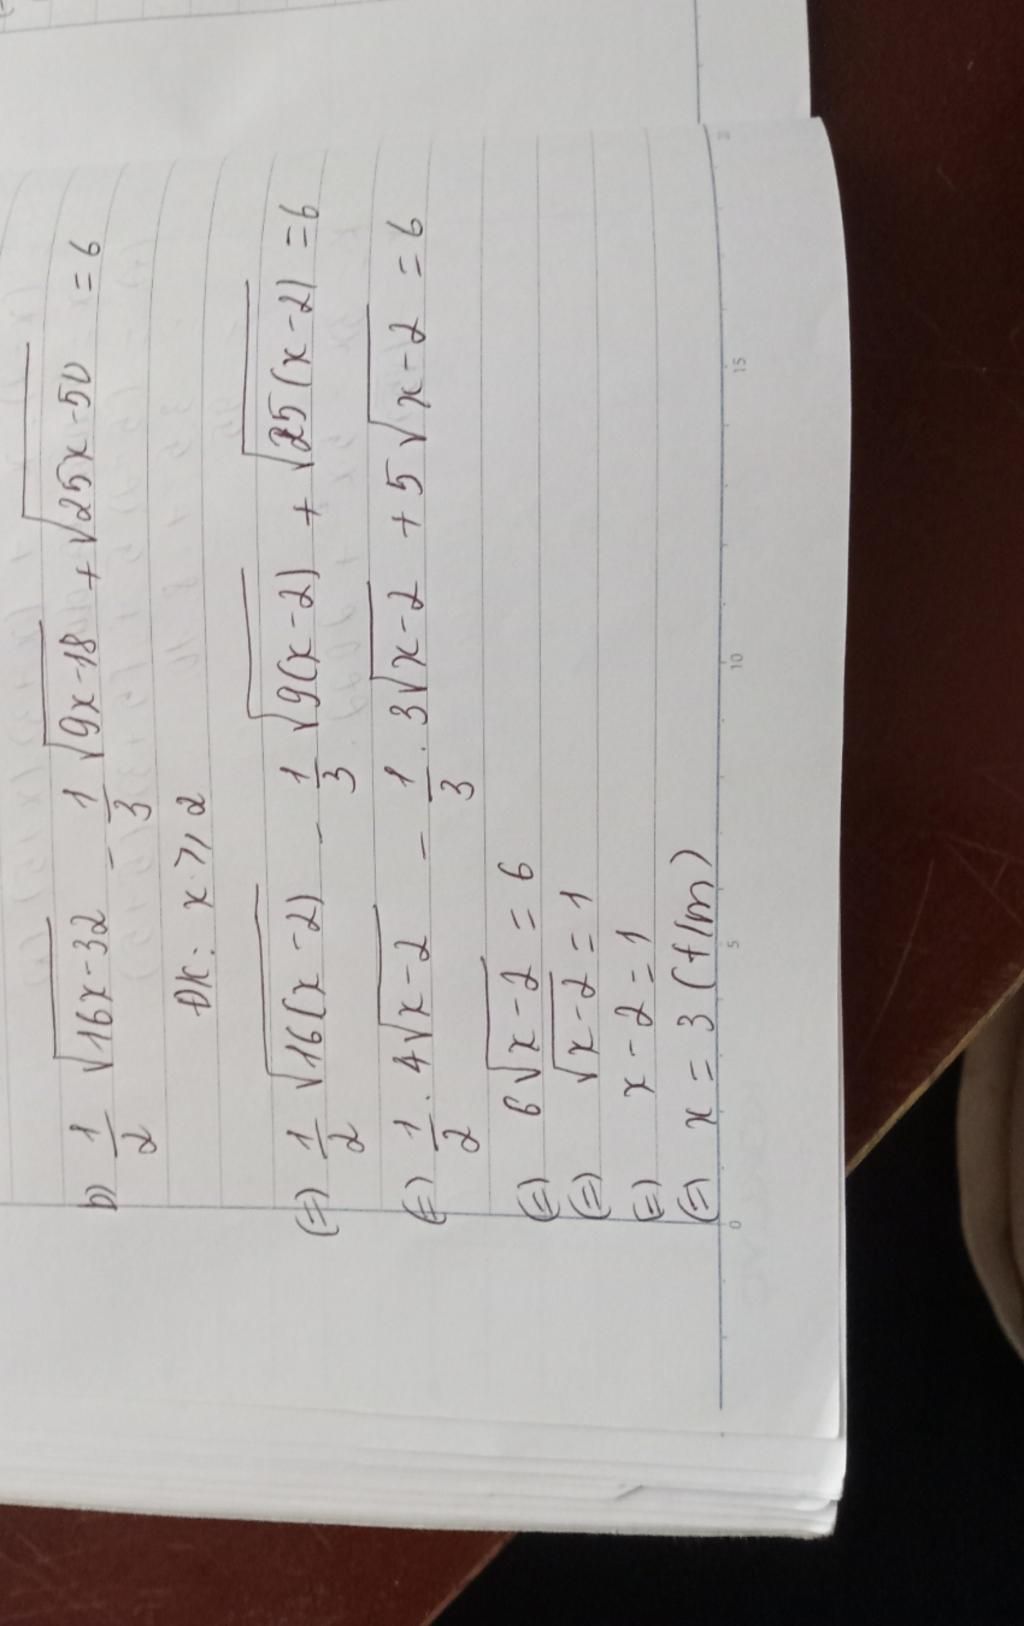 b) 1/2 √(16x-32) - 1/3 √(9x-18) + √(25x-50) = 6
ĐK: x ⩾ 2
(=) 1/2 √(16(x-2)) - 1/3 √(9(x-2)) + √(25(x-2)) = 6
(=) 1/2 . 4√(x-2) - 1/3 . 3√(x-2) + 5√(x-2) = 6
(=) 6√(x-2) = 6
(=) √(x-2) = 1
(=) x-2 = 1
(=) x = 3 (t/m)
0 5 10 15